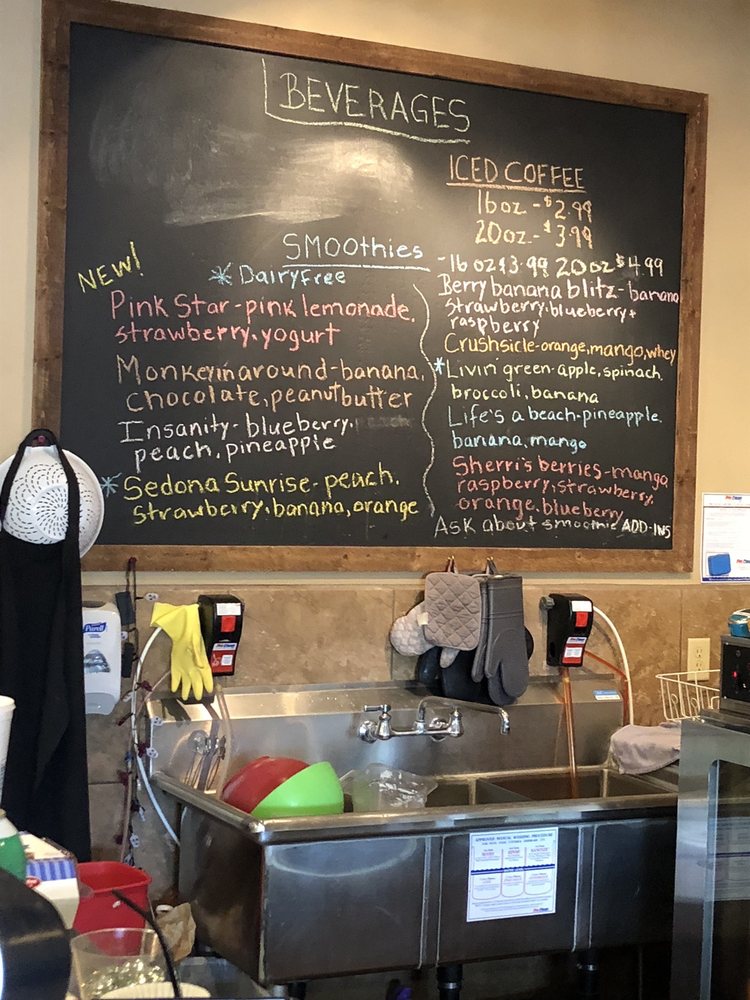 BEVERAGES
ICED COFFEE
16oz. - $2.99
20oz. - $3.99
SMOOthies
* DairyFree
NEW!
Pink Star - pink lemonade,
strawberry, yogurt
Monkeyin around - banana,
Chocolate, peanutbutter
Insanity - blueberry,
peach, pineapple
* Sedona Sunrise - peach,
strawberry, banana, orange
- 16 oz $3.99 20oz $4.99
Berry banana blitz - banana
strawberry, blueberry +
raspberry
Crushsicle - orange, mango, whey
* Livin' green - apple, spinach,
broccoli, banana
Life's a beach - pineapple,
banana, mango
Sherri's berries - manga
raspberry, strawberry,
orange, blueberry
Ask about smoothie ADD-INS
Purell